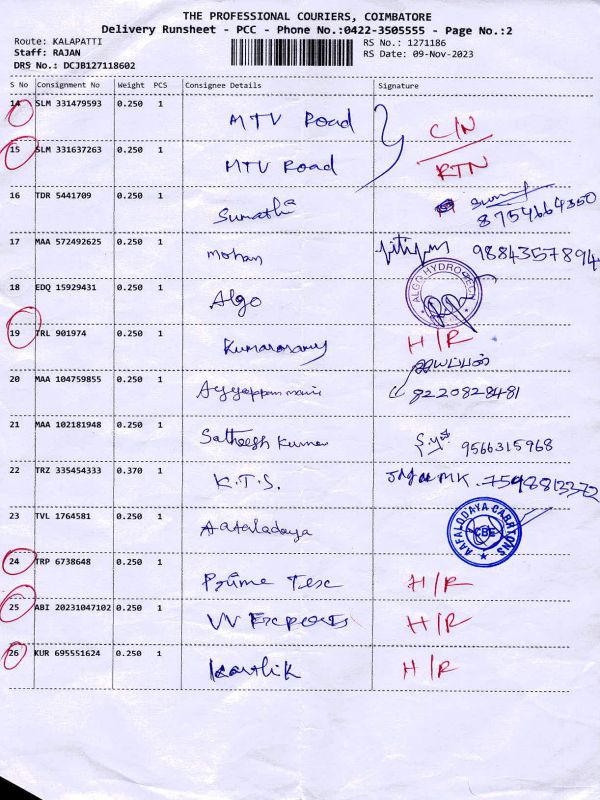 THE PROFESSIONAL COURIERS, COIMBATORE
Delivery Runsheet - PCC - Phone No.:0422-3505555 - Page No.:2
Route: KALAPATTI RS No.: 1271186
Staff: RAJAN RS Date: 09-Nov-2023
DRS No.: DCJB127118602
S No Consignment No Weight PCS Consignee Details Signature
14 SLM 331479593 0.250 1 MTV Road C/N
15 SLM 331637263 0.250 1 MTV Road RTN
16 TDR 5441709 0.250 1 Sumathi 8754664350
17 MAA 572492625 0.250 1 mohan 9884357894
18 EDQ 15929431 0.250 1 Algo ALGO HYDROTECH
19 TRL 901974 0.250 1 Kumarasamy H/R
20 MAA 104759855 0.250 1 Ayyappan mani 8220828481
21 MAA 102181948 0.250 1 Satheesh Kumar 9566315968
22 TRZ 335454333 0.370 1 K.T.S. MK. 7598813372
23 TVL 1764581 0.250 1 Aafalodaya AAFALODAYA CARRTONS CBE
24 TRP 6738648 0.250 1 Prime Tesc H/R
25 ABI 20231047102 0.250 1 VV Exports H/R
26 KUR 695551624 0.250 1 Karthik H/R